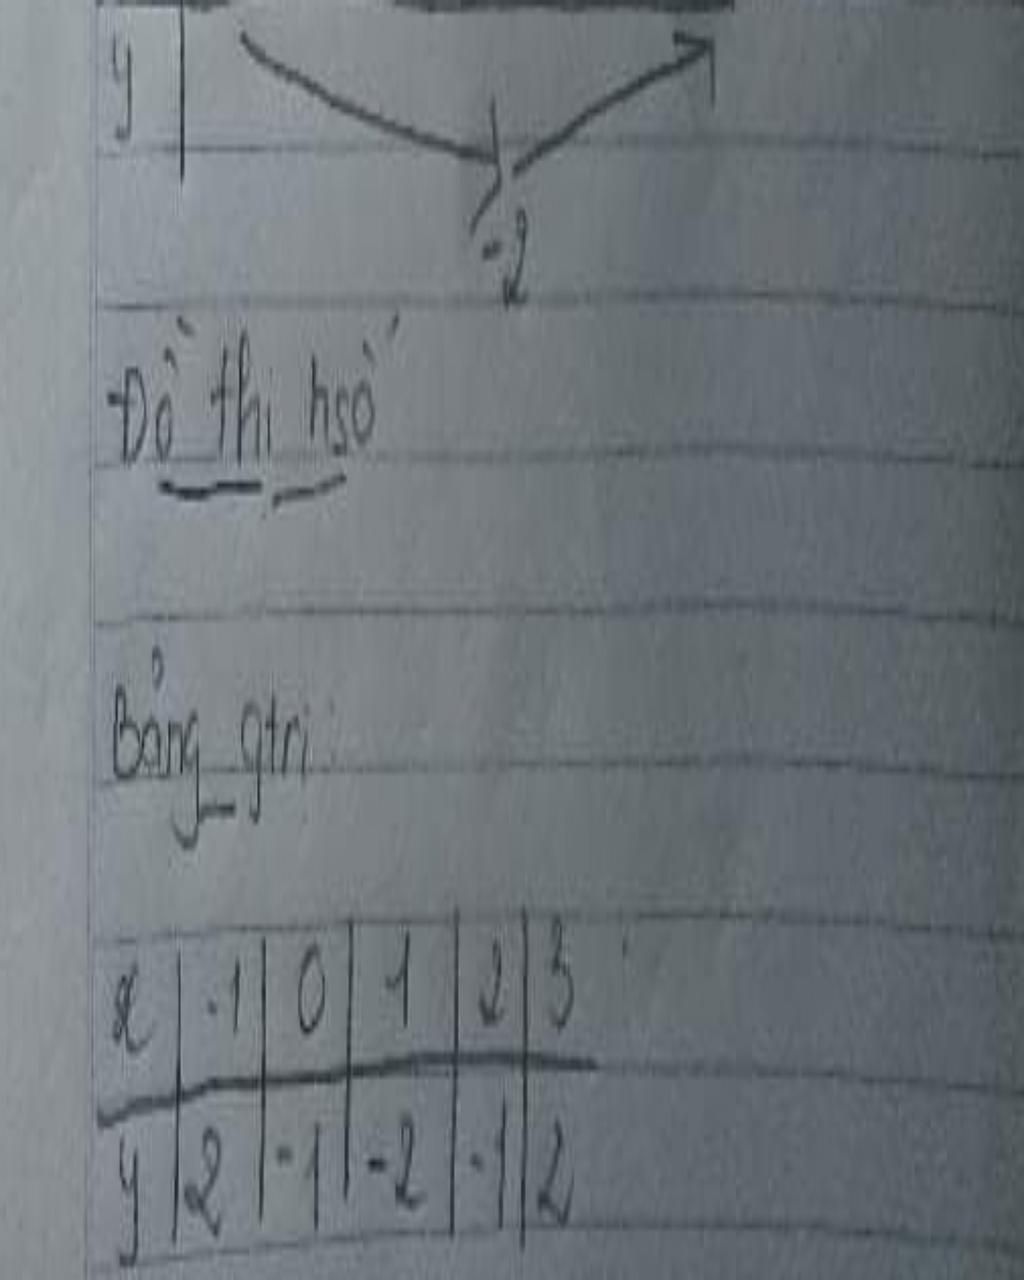 y
-2
Đồ thị hsố
Bảng gtrị:
x | -1 | 0 | 1 | 2 | 3
y | 2 | -1 | -2 | -1 | 2